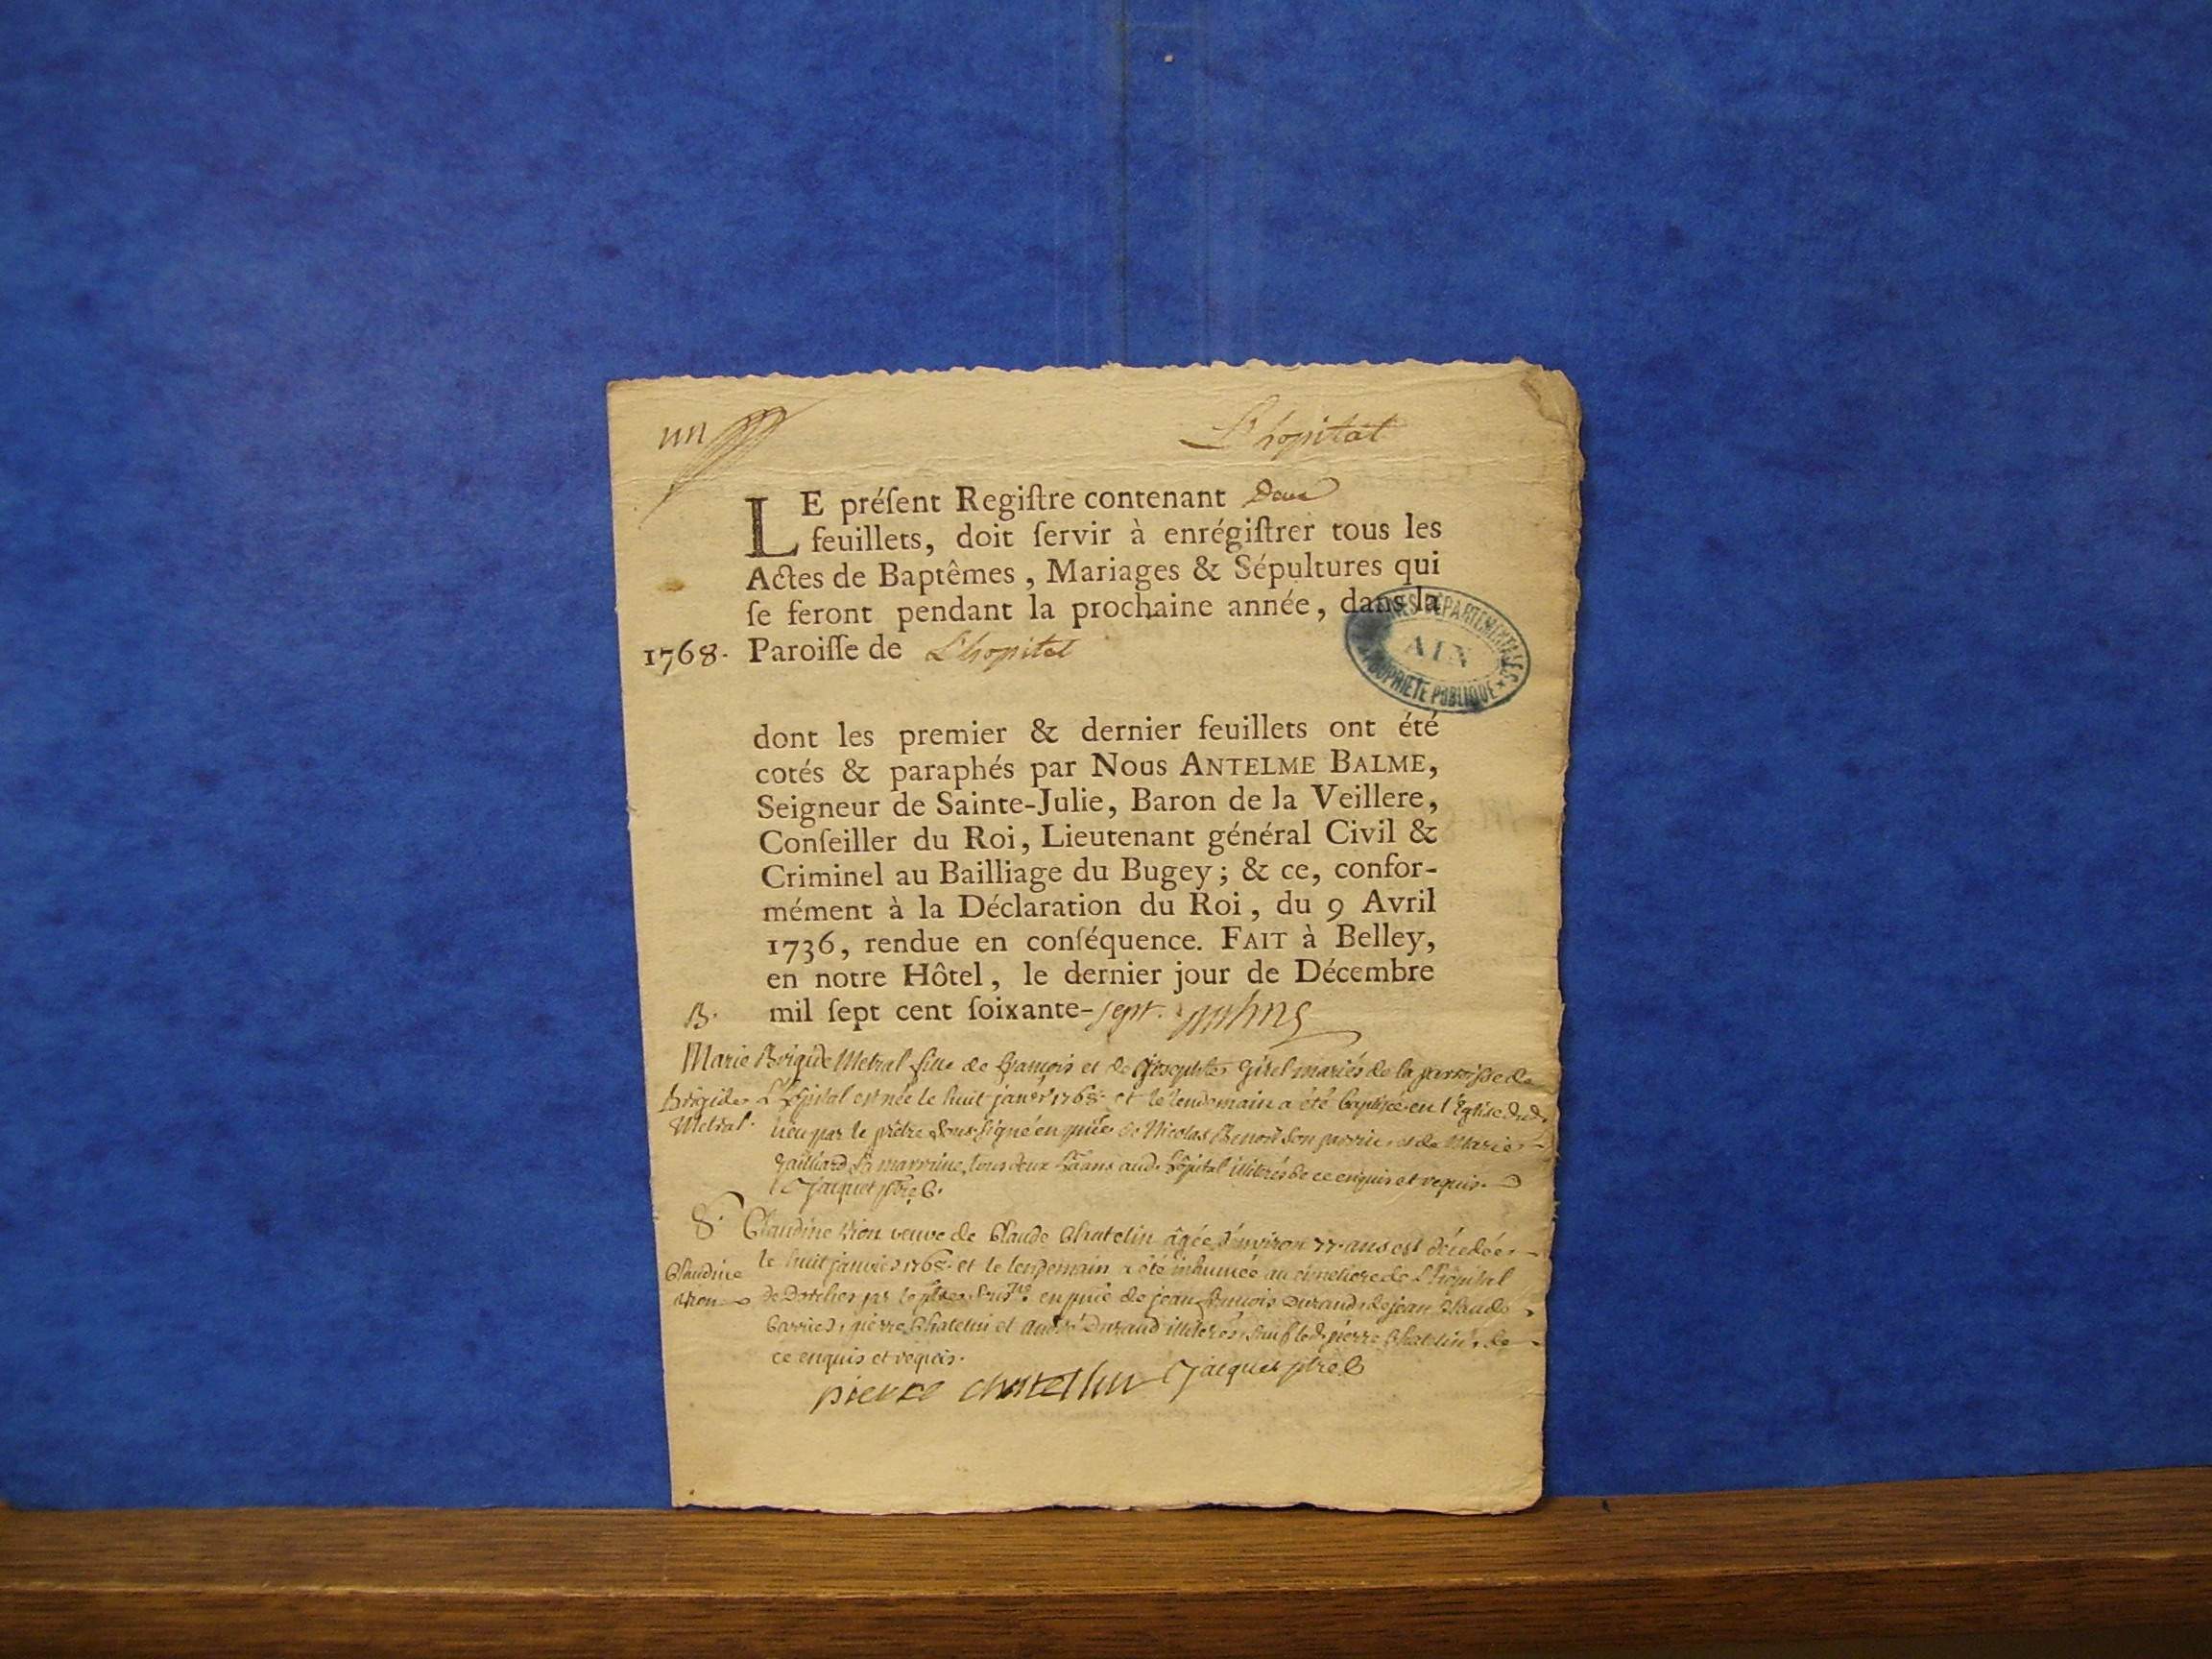 un
L'hopital
LE préſent Regiſtre contenant Deux
feuillets, doit ſervir à enrégiſtrer tous les
Actes de Baptêmes, Mariages & Sépultures qui
ſe feront pendant la prochaine année, dans la
1768. Paroiſſe de L'hopital
ARCHIVES DÉPARTEMENTALES
AIN
PROPRIÉTÉ PUBLIQUE
dont les premier & dernier feuillets ont été
cotés & paraphés par Nous ANTELME BALME,
Seigneur de Sainte-Julie, Baron de la Veillere,
Conſeiller du Roi, Lieutenant général Civil &
Criminel au Bailliage du Bugey; & ce, confor-
mément à la Déclaration du Roi, du 9 Avril
1736, rendue en conſéquence. FAIT à Belley,
en notre Hôtel, le dernier jour de Décembre
mil ſept cent ſoixante-sept.
B.
Marie Brigide Metral fille de françois et de Girel mariés de la parroisse de
Brigide L'hôpital est née le huit janvr 1768 et le lendemain a été baptisée en l'Eglise dud.
Metral. lieu par le prêtre sous signé en de Nicolas Benoit son parrin et de Marie
gailliard sa marrine, tous deux aud. hôpital illiterés de ce enquis et requis.
jacquet ptre C.
S. Claudine Vion veuve de Claude Chatelin âgée d'environ 77 ans est décedée
le huit janvier 1768 et le lendemain a été inhumée au cimetiere de L'hôpital
Claudine
Vion de Dorches par le en de jean françois Durand, de jean Claude
pierre Chatelin et andré Durand illiterés, sauf led. pierre Chatelin, de
ce enquis et requis.
pierre chatellin jacquet ptre C